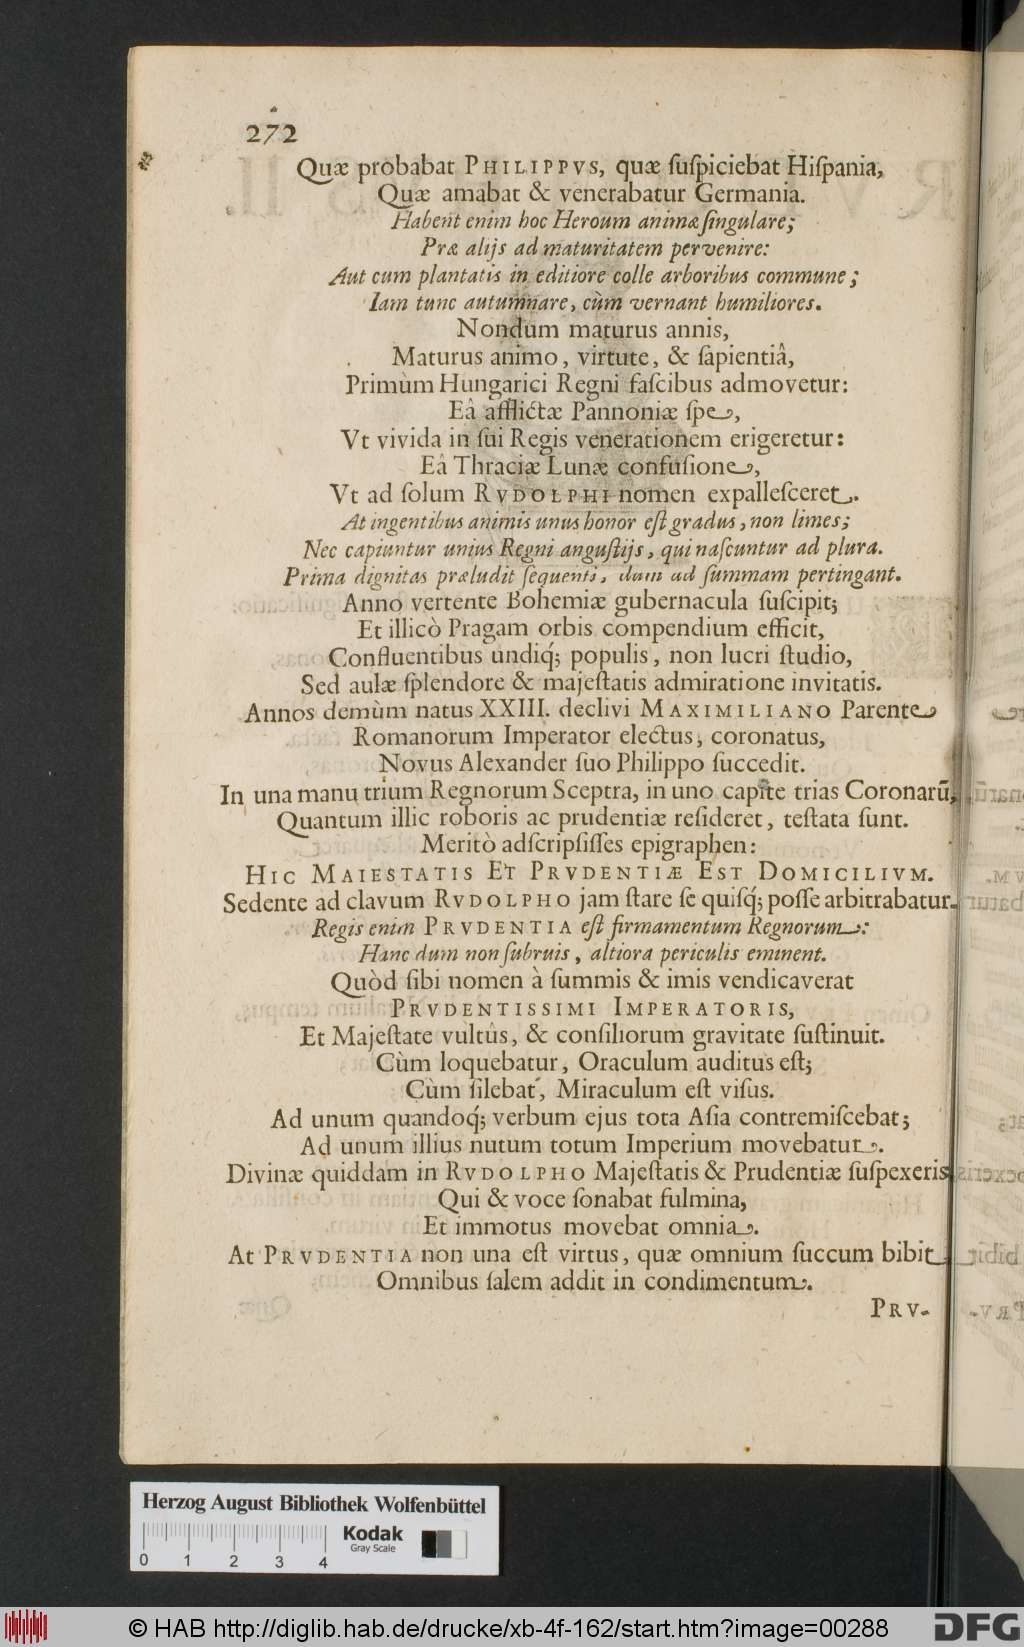 272
Quæ probabat PHILIPPVS, quæ ſuſpiciebat Hiſpania,
Quæ amabat & venerabatur Germania.
Habent enim hoc Heroum animæ ſingulare;
Præ alijs ad maturitatem pervenire:
Aut cum plantatis in editiore colle arboribus commune;
Iam tunc autumnare, cùm vernant humiliores.
Nondum maturus annis,
Maturus animo, virtute, & ſapientiâ,
Primùm Hungarici Regni faſcibus admovetur:
Eâ afflictæ Pannoniæ ſpe,
Vt vivida in ſui Regis venerationem erigeretur:
Eâ Thraciæ Lunæ confuſione,
Vt ad ſolum RVDOLPHI nomen expalleſceret.
At ingentibus animis unus honor eſt gradus, non limes;
Nec capiuntur unius Regni anguſtijs, qui naſcuntur ad plura.
Prima dignitas præludit ſequenti, dum ad ſummam pertingant.
Anno vertente Bohemiæ gubernacula ſuſcipit;
Et illicò Pragam orbis compendium efficit,
Confluentibus undiq́; populis, non lucri ſtudio,
Sed aulæ ſplendore & majeſtatis admiratione invitatis.
Annos demùm natus XXIII. declivi MAXIMILIANO Parente
Romanorum Imperator electus, coronatus,
Novus Alexander ſuo Philippo ſuccedit.
In una manu trium Regnorum Sceptra, in uno capite trias Coronarū,
Quantum illic roboris ac prudentiæ reſideret, teſtata ſunt.
Meritò adſcripſiſſes epigraphen:
HIC MAIESTATIS ET PRVDENTIÆ EST DOMICILIVM.
Sedente ad clavum RVDOLPHO jam ſtare ſe quiſq́; poſſe arbitrabatur.
Regis enim PRVDENTIA eſt firmamentum Regnorum:
Hanc dum non ſubruis, altiora periculis eminent.
Quòd ſibi nomen à ſummis & imis vendicaverat
PRVDENTISSIMI IMPERATORIS,
Et Majeſtate vultûs, & conſiliorum gravitate ſuſtinuit.
Cùm loquebatur, Oraculum auditus eſt;
Cùm ſilebat, Miraculum eſt viſus.
Ad unum quandoq́; verbum ejus tota Aſia contremiſcebat;
Ad unum illius nutum totum Imperium movebatur.
Divinæ quiddam in RVDOLPHO Majeſtatis & Prudentiæ ſuſpexeris,
Qui & voce ſonabat fulmina,
Et immotus movebat omnia.
At PRVDENTIA non una eſt virtus, quæ omnium ſuccum bibit
Omnibus ſalem addit in condimentum.
PRV-
Herzog August Bibliothek Wolfenbüttel
Kodak
Gray Scale
0 1 2 3 4
© HAB http://diglib.hab.de/drucke/xb-4f-162/start.htm?image=00288
DFG